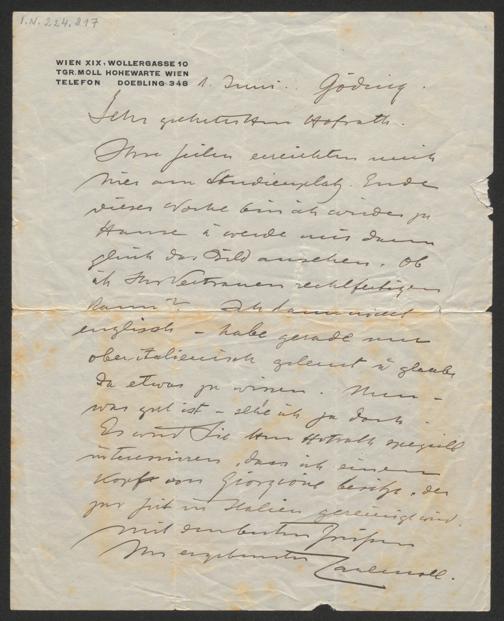 I.N. 224.817
WIEN XIX, WOLLERGASSE 10
TGR. MOLL HOHEWARTE WIEN
TELEFON DOEBLING 348
1. Juni. Göding.
Sehr geehrter Herr Hofrath.
Ihre Zeilen erreichten mich
hier am Studienplatz. Ende
dieser Woche bin ich wieder zu
Hause u werde mir dann
gleich das Bild ansehen. Ob
ich Ihr Vertrauen rechtfertigen
kann? Ich kann nicht
englisch – habe gerade nur
oberitalienisch gelernt u glaube
da etwas zu wissen. Nun –
was gut ist – sehe ich ja doch.
Es wird Sie Herr Hofrath speziell
interessieren, dass ich einen
Kopf von Georgione besitze, der
zur Zeit in Italien gereinigt wird.
Mit den besten Grüßen
Ihr ergebenster Carl Moll.